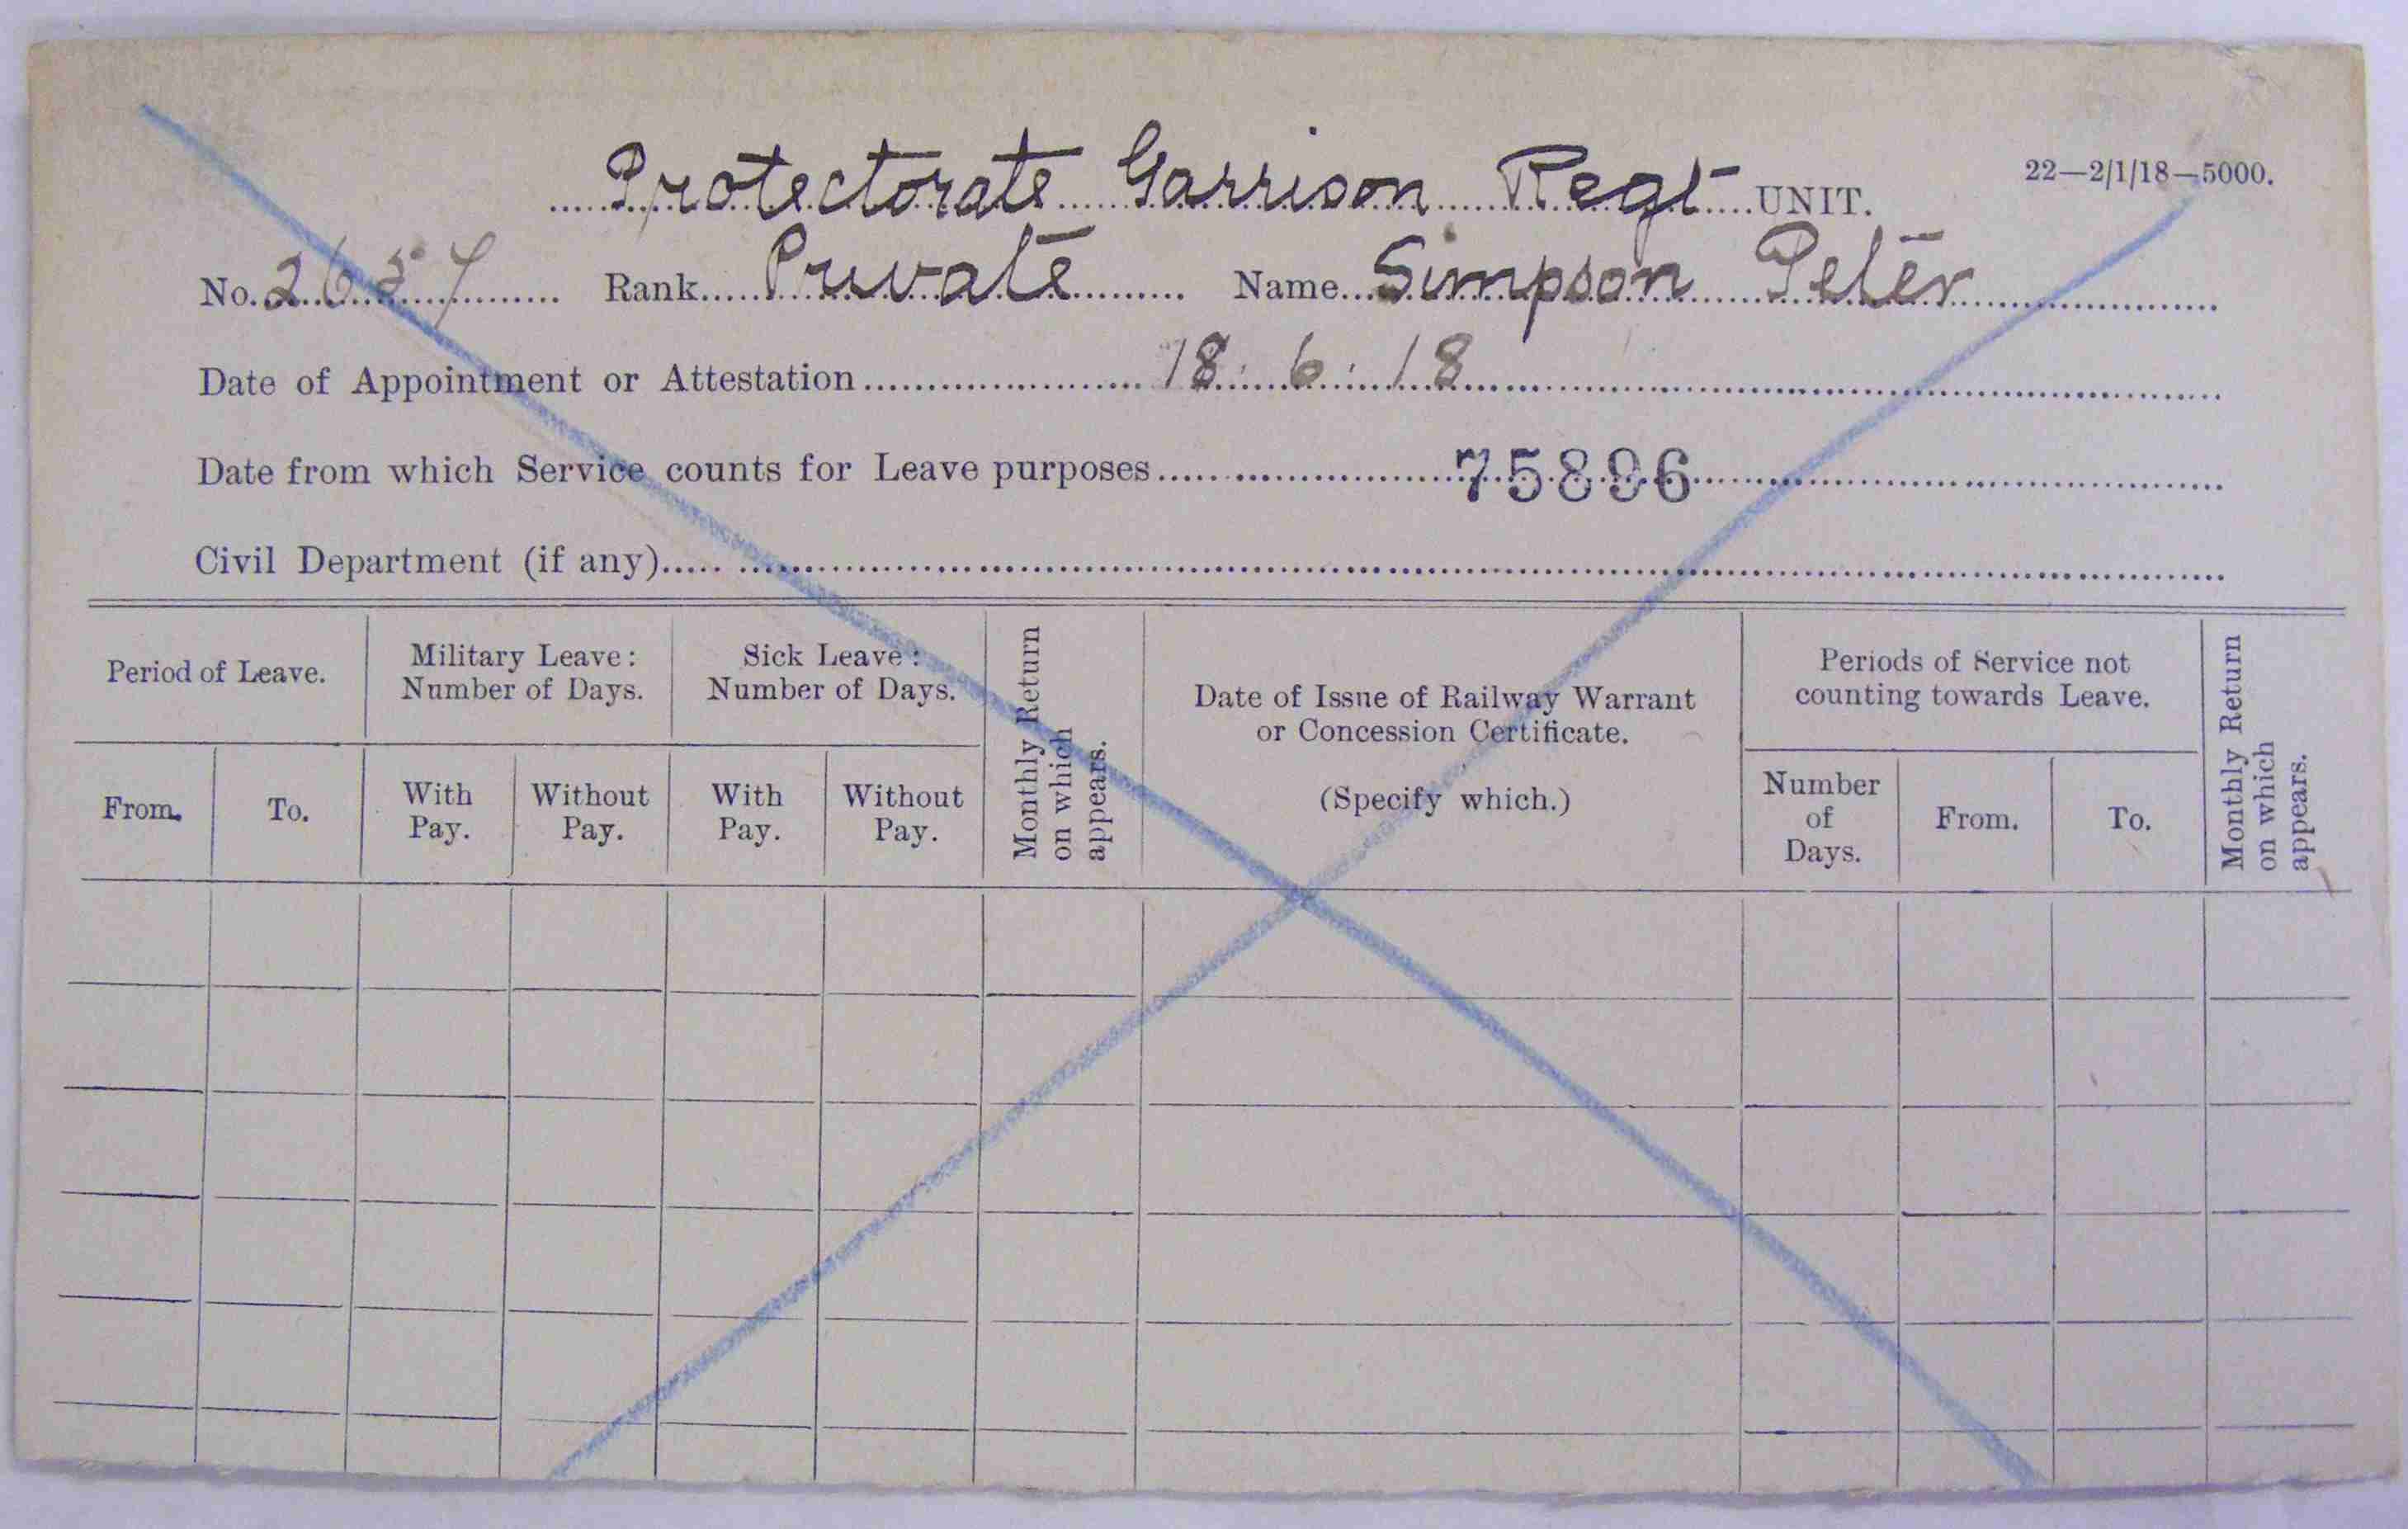 22—2/1/18—5000.
Protectorate Garrison Regt UNIT.
No. 2657 Rank Private Name Simpson Peter
Date of Appointment or Attestation 18.6.18
Date from which Service counts for Leave purposes 75896
Civil Department (if any)
Period of Leave.
From.
To.
Military Leave:
Number of Days.
With
Pay.
Without
Pay.
Sick Leave:
Number of Days.
With
Pay.
Without
Pay.
Monthly Return
on which
appears.
Date of Issue of Railway Warrant
or Concession Certificate.
(Specify which.)
Periods of Service not
counting towards Leave.
Number
of
Days.
From.
To.
Monthly Return
on which
appears.